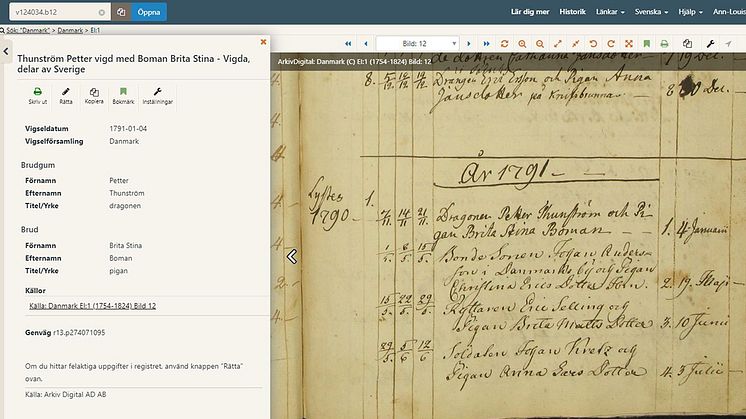 v124034.b12
Öppna
Lär dig mer
Historik
Länkar
Svenska
Hjälp
Ann-Louis
Sök: "Danmark" > Danmark > EI:1
Bild: 12
Thunström Petter vigd med Boman Brita Stina - Vigda, delar av Sverige
ArkivDigital: Danmark (C) EI:1 (1754-1824) Bild: 12
Skriv ut
Rätta
Kopiera
Bokmärk
Inställningar
Vigseldatum 1791-01-04
Vigselförsamling Danmark
Brudgum
Förnamn Petter
Efternamn Thunström
Titel/Yrke dragonen
Brud
Förnamn Brita Stina
Efternamn Boman
Titel/Yrke pigan
Källor
Källa: Danmark EI:1 (1754-1824) Bild 12
Genväg r13.p274071095
Om du hittar felaktiga uppgifter i registret, använd knappen "Rätta" ovan.
Källa: Arkiv Digital AD AB
8.
Drängen Ersson och Pigan Anna
Jansdotter på
Dec.
År 1791
Lystes
1790
1.
Dragonen Petter Thunström och Pi
gan Brita Stina Boman
1. 4 Januari
Bonde Sonen Johan Anders
son i Danmarks by och Pigan
Christina Erics Dotter
2. 19. Maji
Eric Selling och
Pigan Brita Matts Dotter
3. 10 Junii
Soldaten Johan och
Pigan Anna Lars Dotter
4. 3 Julii